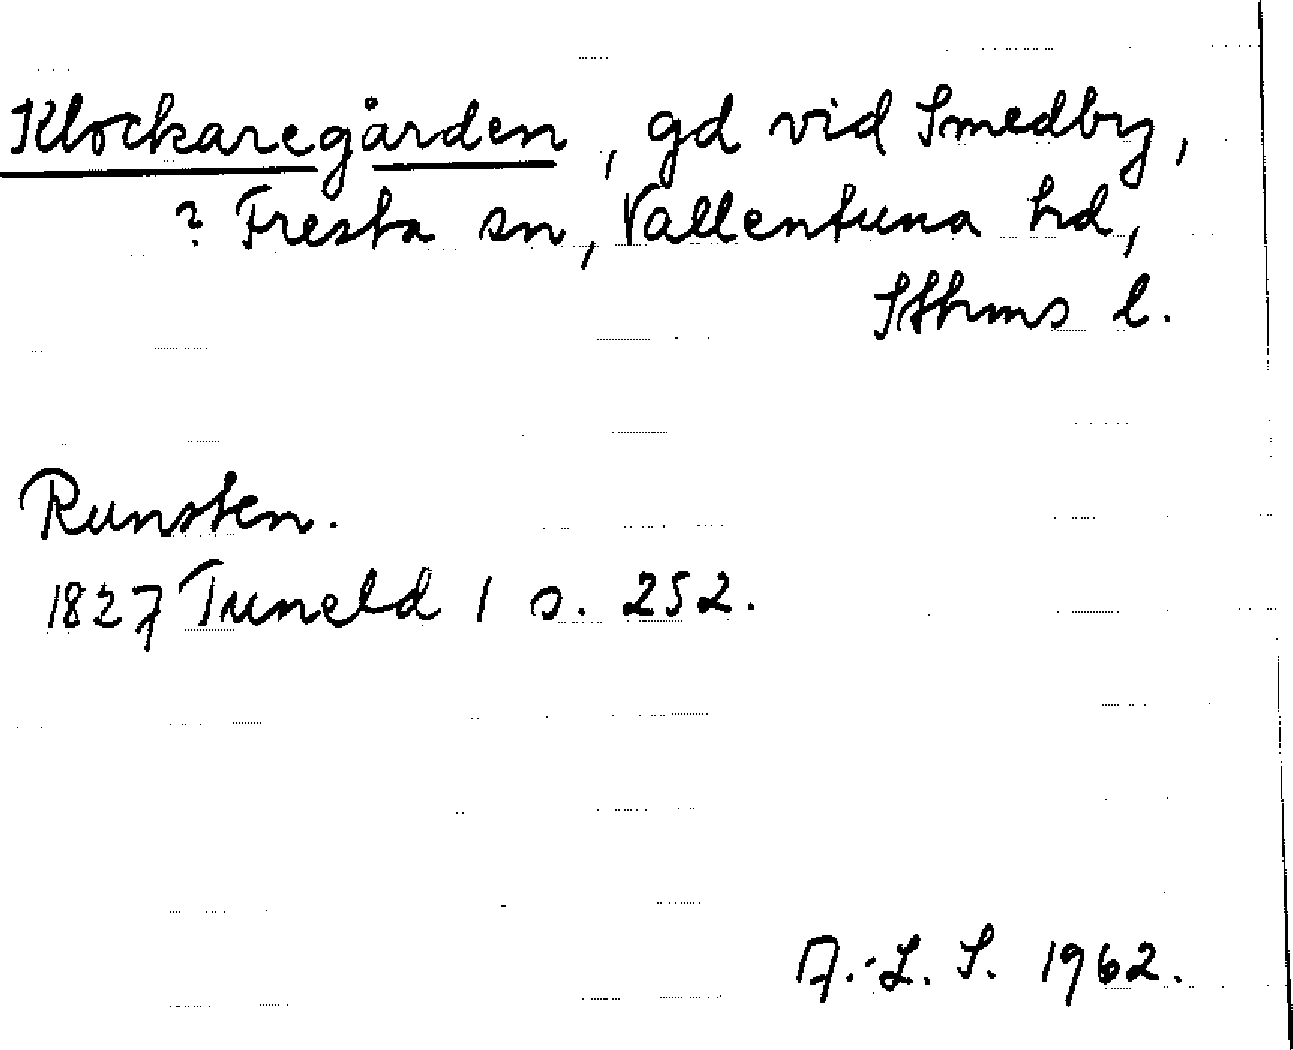 Klockaregården, gd vid Smedby,
? Fresta sn, Vallentuna hd,
Sthms l.
Runsten.
1827 Tuneld 1 s. 252.
A.-L. S. 1962.